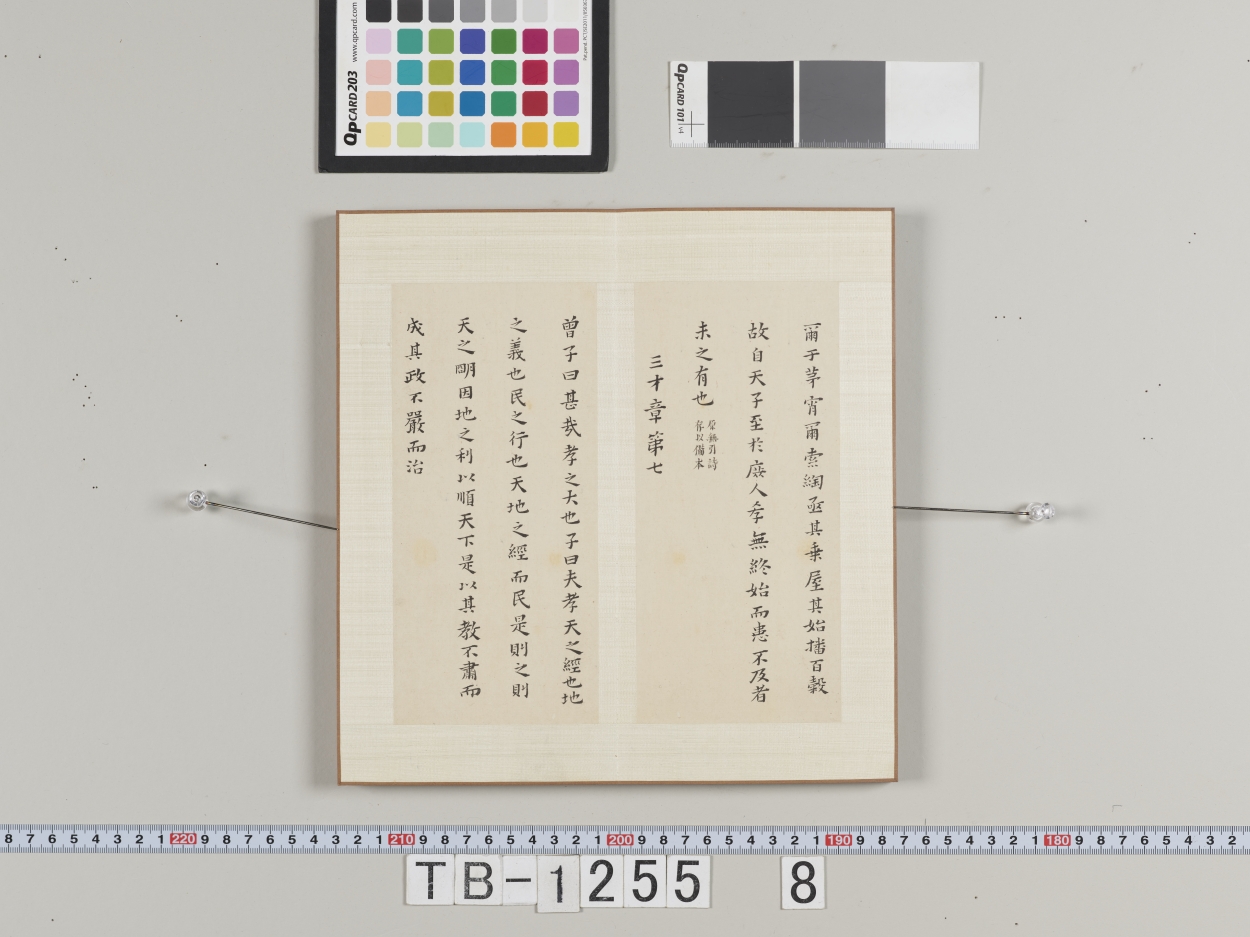 QpCARD 203
www.qpcard.com
QpCARD 101 v4
爾于茅宵爾索綯亟其乗屋其始播百穀
故自天子至於庶人孝無終始而患不及者
未之有也
引詩
以備本
三才章第七
曾子曰甚哉孝之大也子曰夫孝天之經也地
之義也民之行也天地之經而民是則之則
天之明因地之利以順天下是以其教不肅而
成其政不嚴而治
8 7 6 5 4 3 2 1 220 9 8 7 6 5 4 3 2 1 210 9 8 7 6 5 4 3 2 1 200 9 8 7 6 5 4 3 2 1 190 9 8 7 6 5 4 3 2 1 180 9 8 7 6 5 4 3 2
TB-1255 8